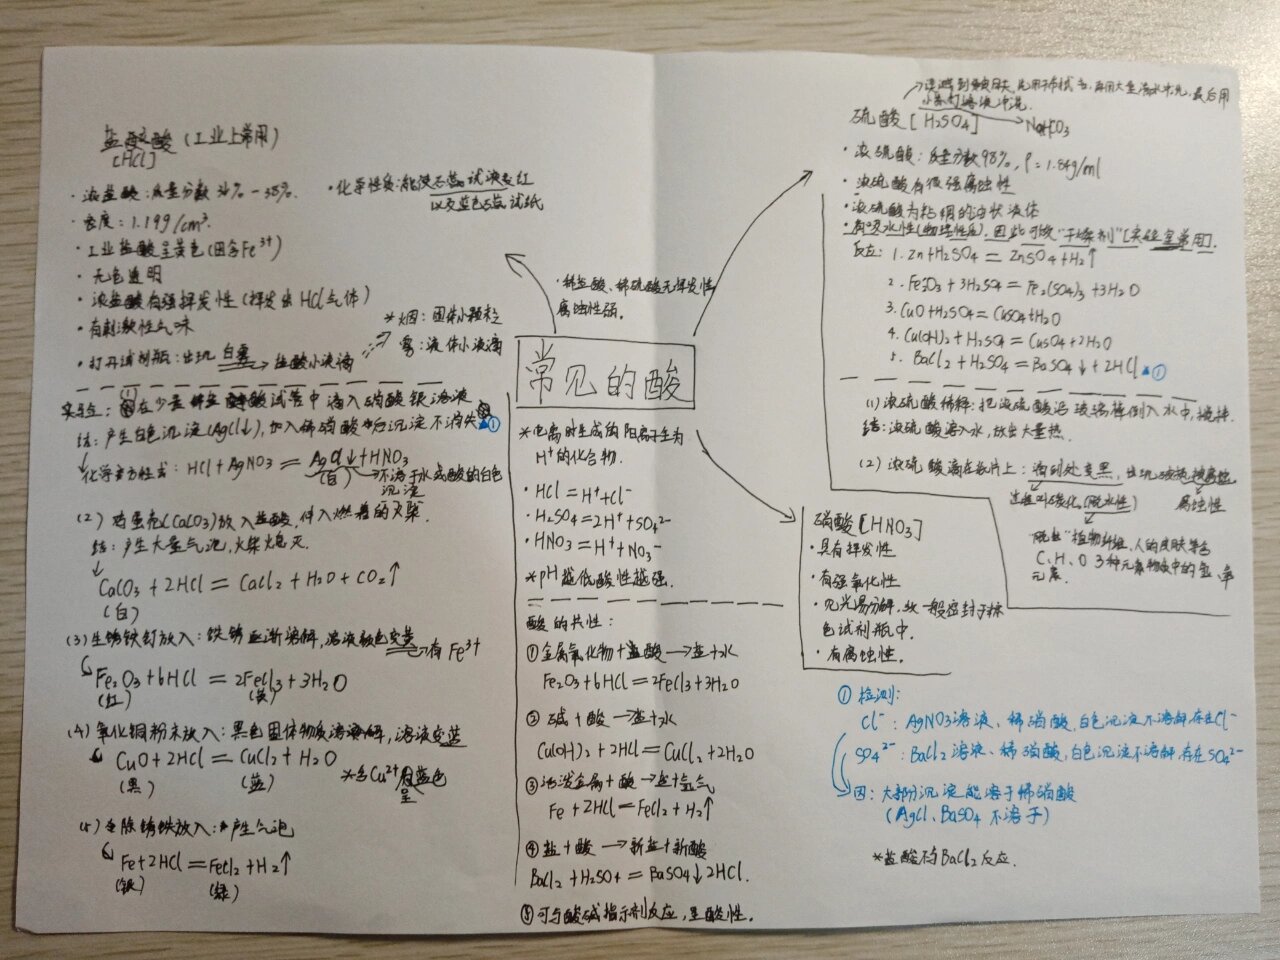 盐酸(工业上常用)
[HCl]
·浓盐酸:质量分数36%-38%.
·密度:1.19g/cm³.
·工业盐酸呈黄色(因含Fe³⁺)
·无色透明
·浓盐酸有强挥发性(挥发出HCl气体)
·有刺激性气味
·打开试剂瓶:出现白雾→盐酸小液滴
·化学性质:能使石蕊试液变红
以及蓝色石蕊试纸
*烟:固体小颗粒
雾:液体小液滴
实验:①在少量稀盐酸试管中滴入硝酸银溶液
结:产生白色沉淀(AgCl↓),加入稀硝酸后沉淀不消失▲①
化学方程式:HCl+AgNO3=AgCl↓+HNO3
(白)→不溶于水或酸的白色
沉淀
(2)鸡蛋壳(CaCO3)放入盐酸,伸入燃着的火柴.
结:产生大量气泡,火柴熄灭.
CaCO3+2HCl=CaCl2+H2O+CO2↑
(白)
(3)生锈铁钉放入:铁锈逐渐溶解,溶液颜色变黄→有Fe³⁺
Fe2O3+6HCl=2FeCl3+3H2O
(红) (黄)
(4)氧化铜粉末放入:黑色固体物质溶解,溶液变蓝
CuO+2HCl=CuCl2+H2O
(黑) (蓝)
*含Cu²⁺呈蓝色
(5)除锈铁放入:产生气泡
Fe+2HCl=FeCl2+H2↑
(银) (绿)
·稀盐酸、稀硫酸无挥发性
腐蚀性弱.
常见的酸
*电离时生成的阳离子全为
H⁺的化合物.
·HCl=H⁺+Cl⁻
·H2SO4=2H⁺+SO4²⁻
·HNO3=H⁺+NO3⁻
*pH越低酸性越强.
酸的共性:
①金属氧化物+盐酸→盐+水
Fe2O3+6HCl=2FeCl3+3H2O
②碱+酸→盐+水
Cu(OH)2+2HCl=CuCl2+2H2O
③活泼金属+酸→盐+氢气
Fe+2HCl=FeCl2+H2↑
④盐+酸→新盐+新酸
BaCl2+H2SO4=BaSO4↓2HCl.
⑤可与酸碱指示剂反应,呈酸性.
→误溅到皮肤,先用干布拭去,再用大量清水冲洗,最后用
小苏打溶液冲洗.
→NaHCO3
硫酸[H2SO4]
·浓硫酸:质量分数98%,ρ=1.84g/ml
·浓硫酸有很强腐蚀性
·浓硫酸为粘稠的油状液体
·有吸水性(物理性质),因此可做"干燥剂"[实验室常用].
反应:1.Zn+H2SO4=ZnSO4+H2↑
2.Fe2O3+3H2SO4=Fe2(SO4)3+3H2O
3.CuO+H2SO4=CuSO4+H2O
4.Cu(OH)2+H2SO4=CuSO4+2H2O
5.BaCl2+H2SO4=BaSO4↓+2HCl▲①
(1)浓硫酸稀释:把浓硫酸沿玻璃棒倒入水中,搅拌.
结:浓硫酸溶入水,放出大量热.
(2)浓硫酸滴在纸片上:滴到处变黑,出现破洞,
这叫碳化.(脱水性)
腐蚀性
脱出"植物纤维,人的皮肤等含
C、H、O 3种元素物质中的氢、氧
元素.
硝酸[HNO3]
·具有挥发性
·有强氧化性
·见光易分解,故一般密封于棕
色试剂瓶中.
·有腐蚀性.
①检测:
Cl⁻:AgNO3溶液、稀硝酸,白色沉淀不溶解,存在Cl⁻
SO4²⁻:BaCl2溶液、稀硝酸,白色沉淀不溶解,存在SO4²⁻
因:大部分沉淀能溶于稀硝酸
(AgCl、BaSO4不溶于)
*盐酸不与BaCl2反应.